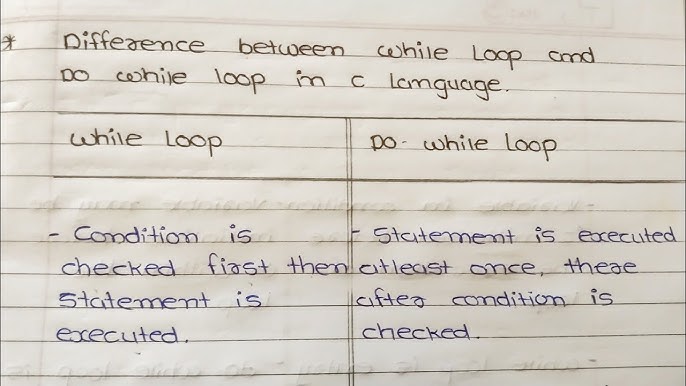 * Difference between while loop and
Do while loop in c language.
while loop
Do- while loop
- Condition is
checked first then
statement is
executed.
- Statement is executed
atleast once, there
after condition is
checked.